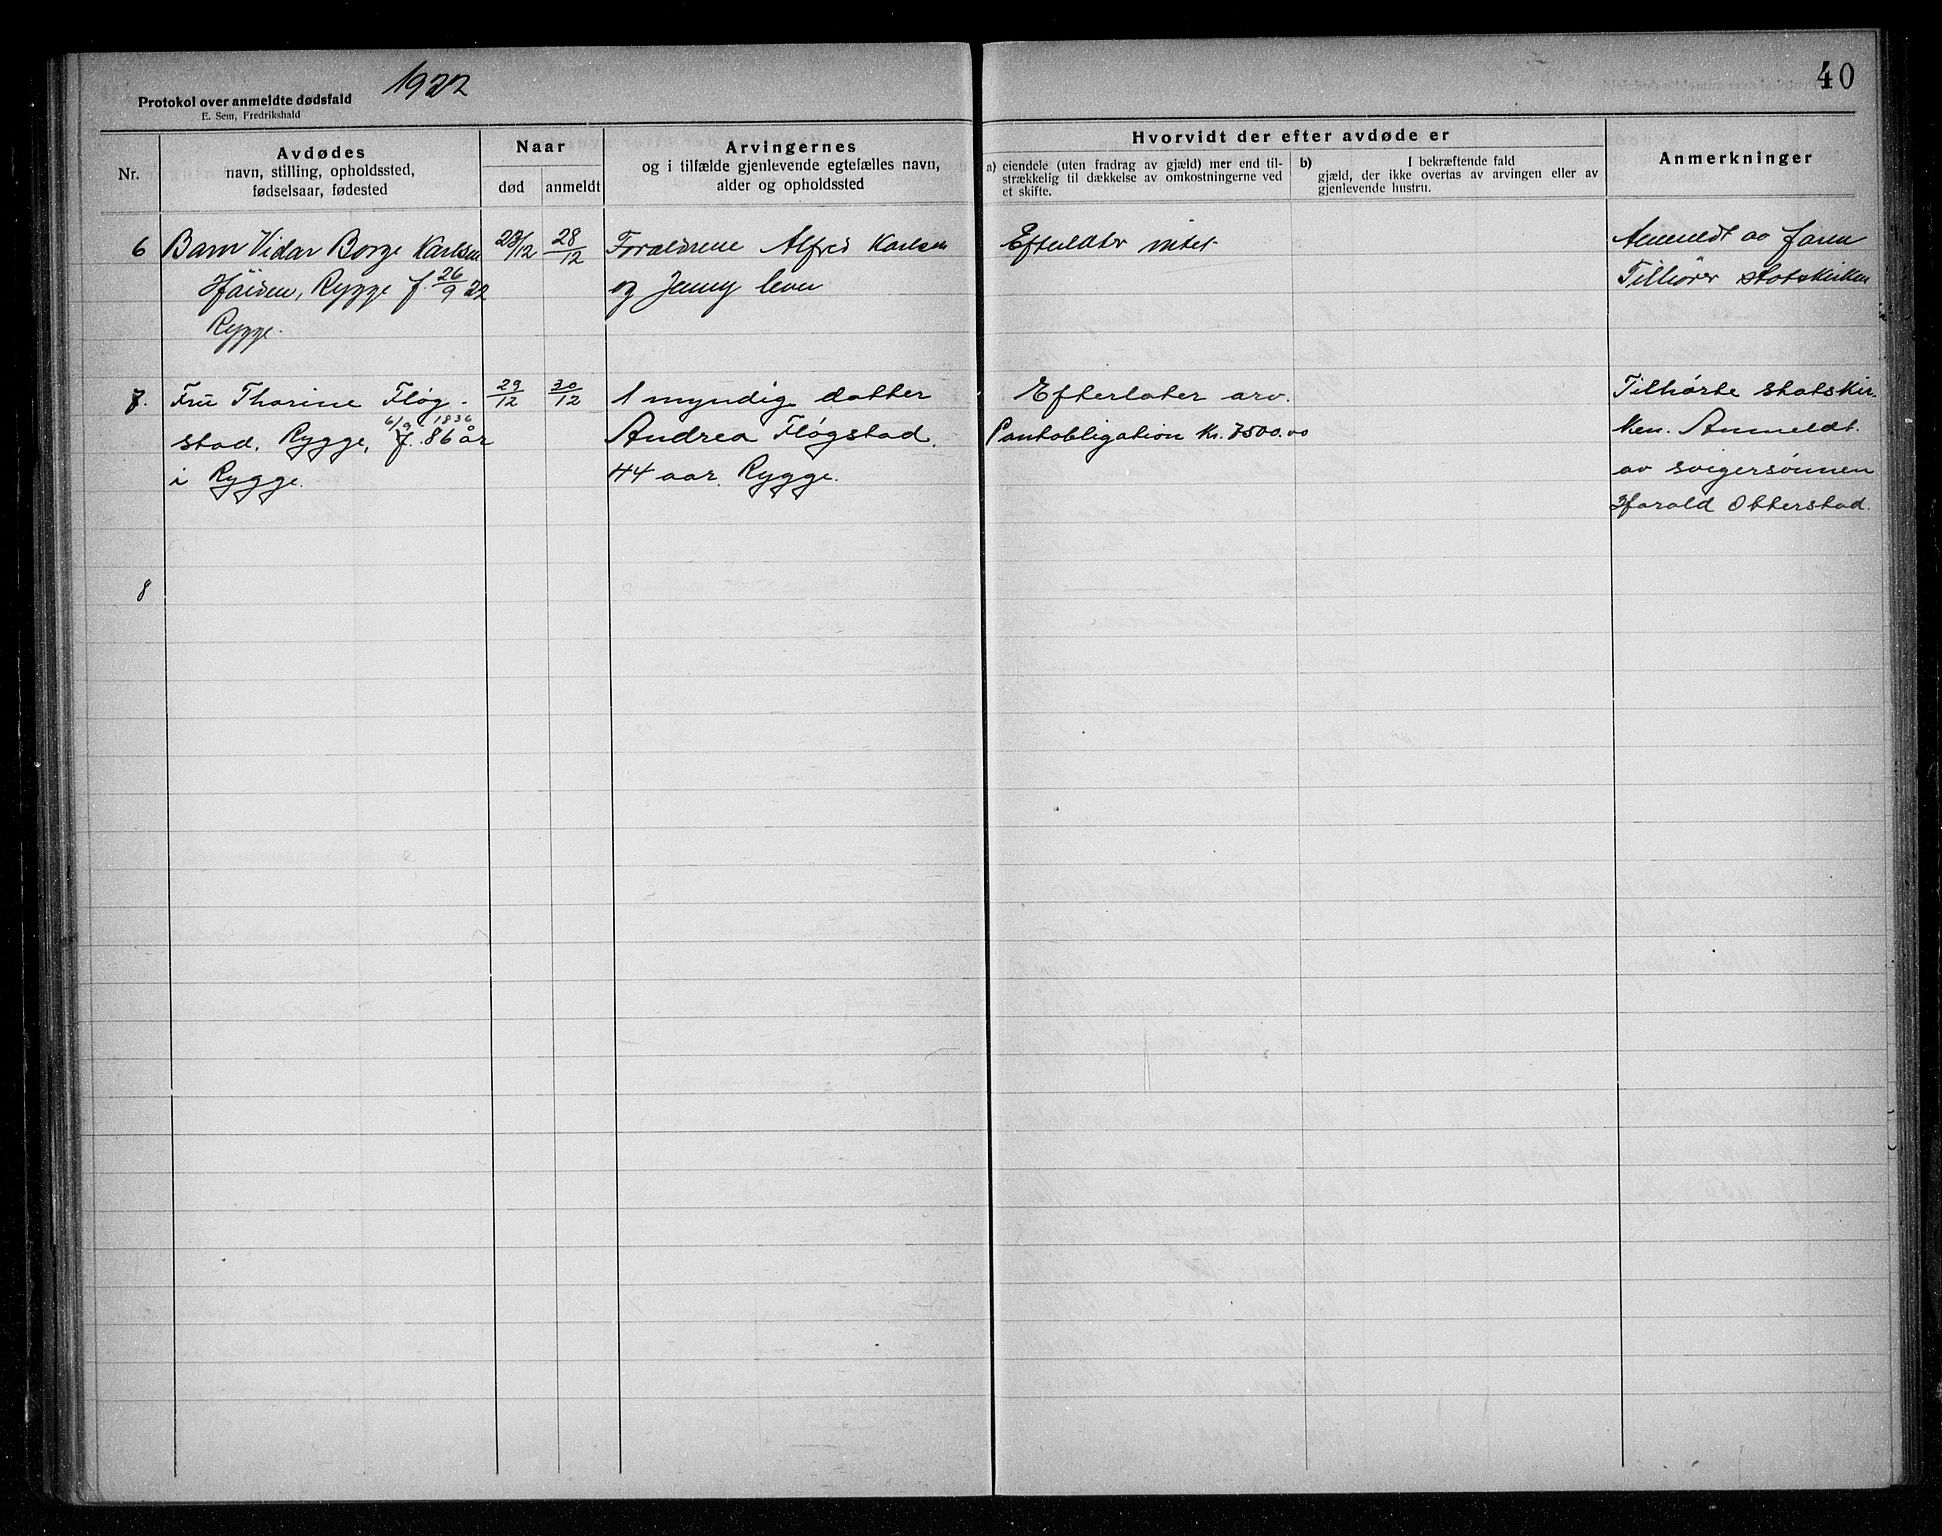 1922
40
Protokol over anmeldte dødsfald
E. Sem, Fredrikshald
Nr.
Avdødes
navn, stilling, opholdssted,
fødselsaar, fødested
Naar
død
anmeldt
Arvingernes
og i tilfælde gjenlevende egtefælles navn,
alder og opholdssted
Hvorvidt der efter avdøde er
a) eiendele (uten fradrag av gjæld) mer end til-
strækkelig til dækkelse av omkostningerne ved
et skifte.
b) I bekræftende fald
gjæld, der ikke overtas av arvingen eller av
gjenlevende hustru.
Anmerkninger
6 Barn Vidar Borge Karlsen
Rygge f. 26/9 22
Rygge.
28/12
Forældrene Alfred Karlsen
og Jenny lever
Efterlater intet
Anmeldt av faren
Tilhører statskirken
7. Fru Thorine Fløg-
6/9 1836
stad, Rygge, f. 86 år
i Rygge.
29/12
30/12
1 myndig datter
Andrea Fløgstad.
44 aar. Rygge.
Efterlater arv.
Pantobligation Kr. 7500.00
Tilhørte statskir-
ken. Anmeldt.
av svigersønnen
Harald Otterstad.
8